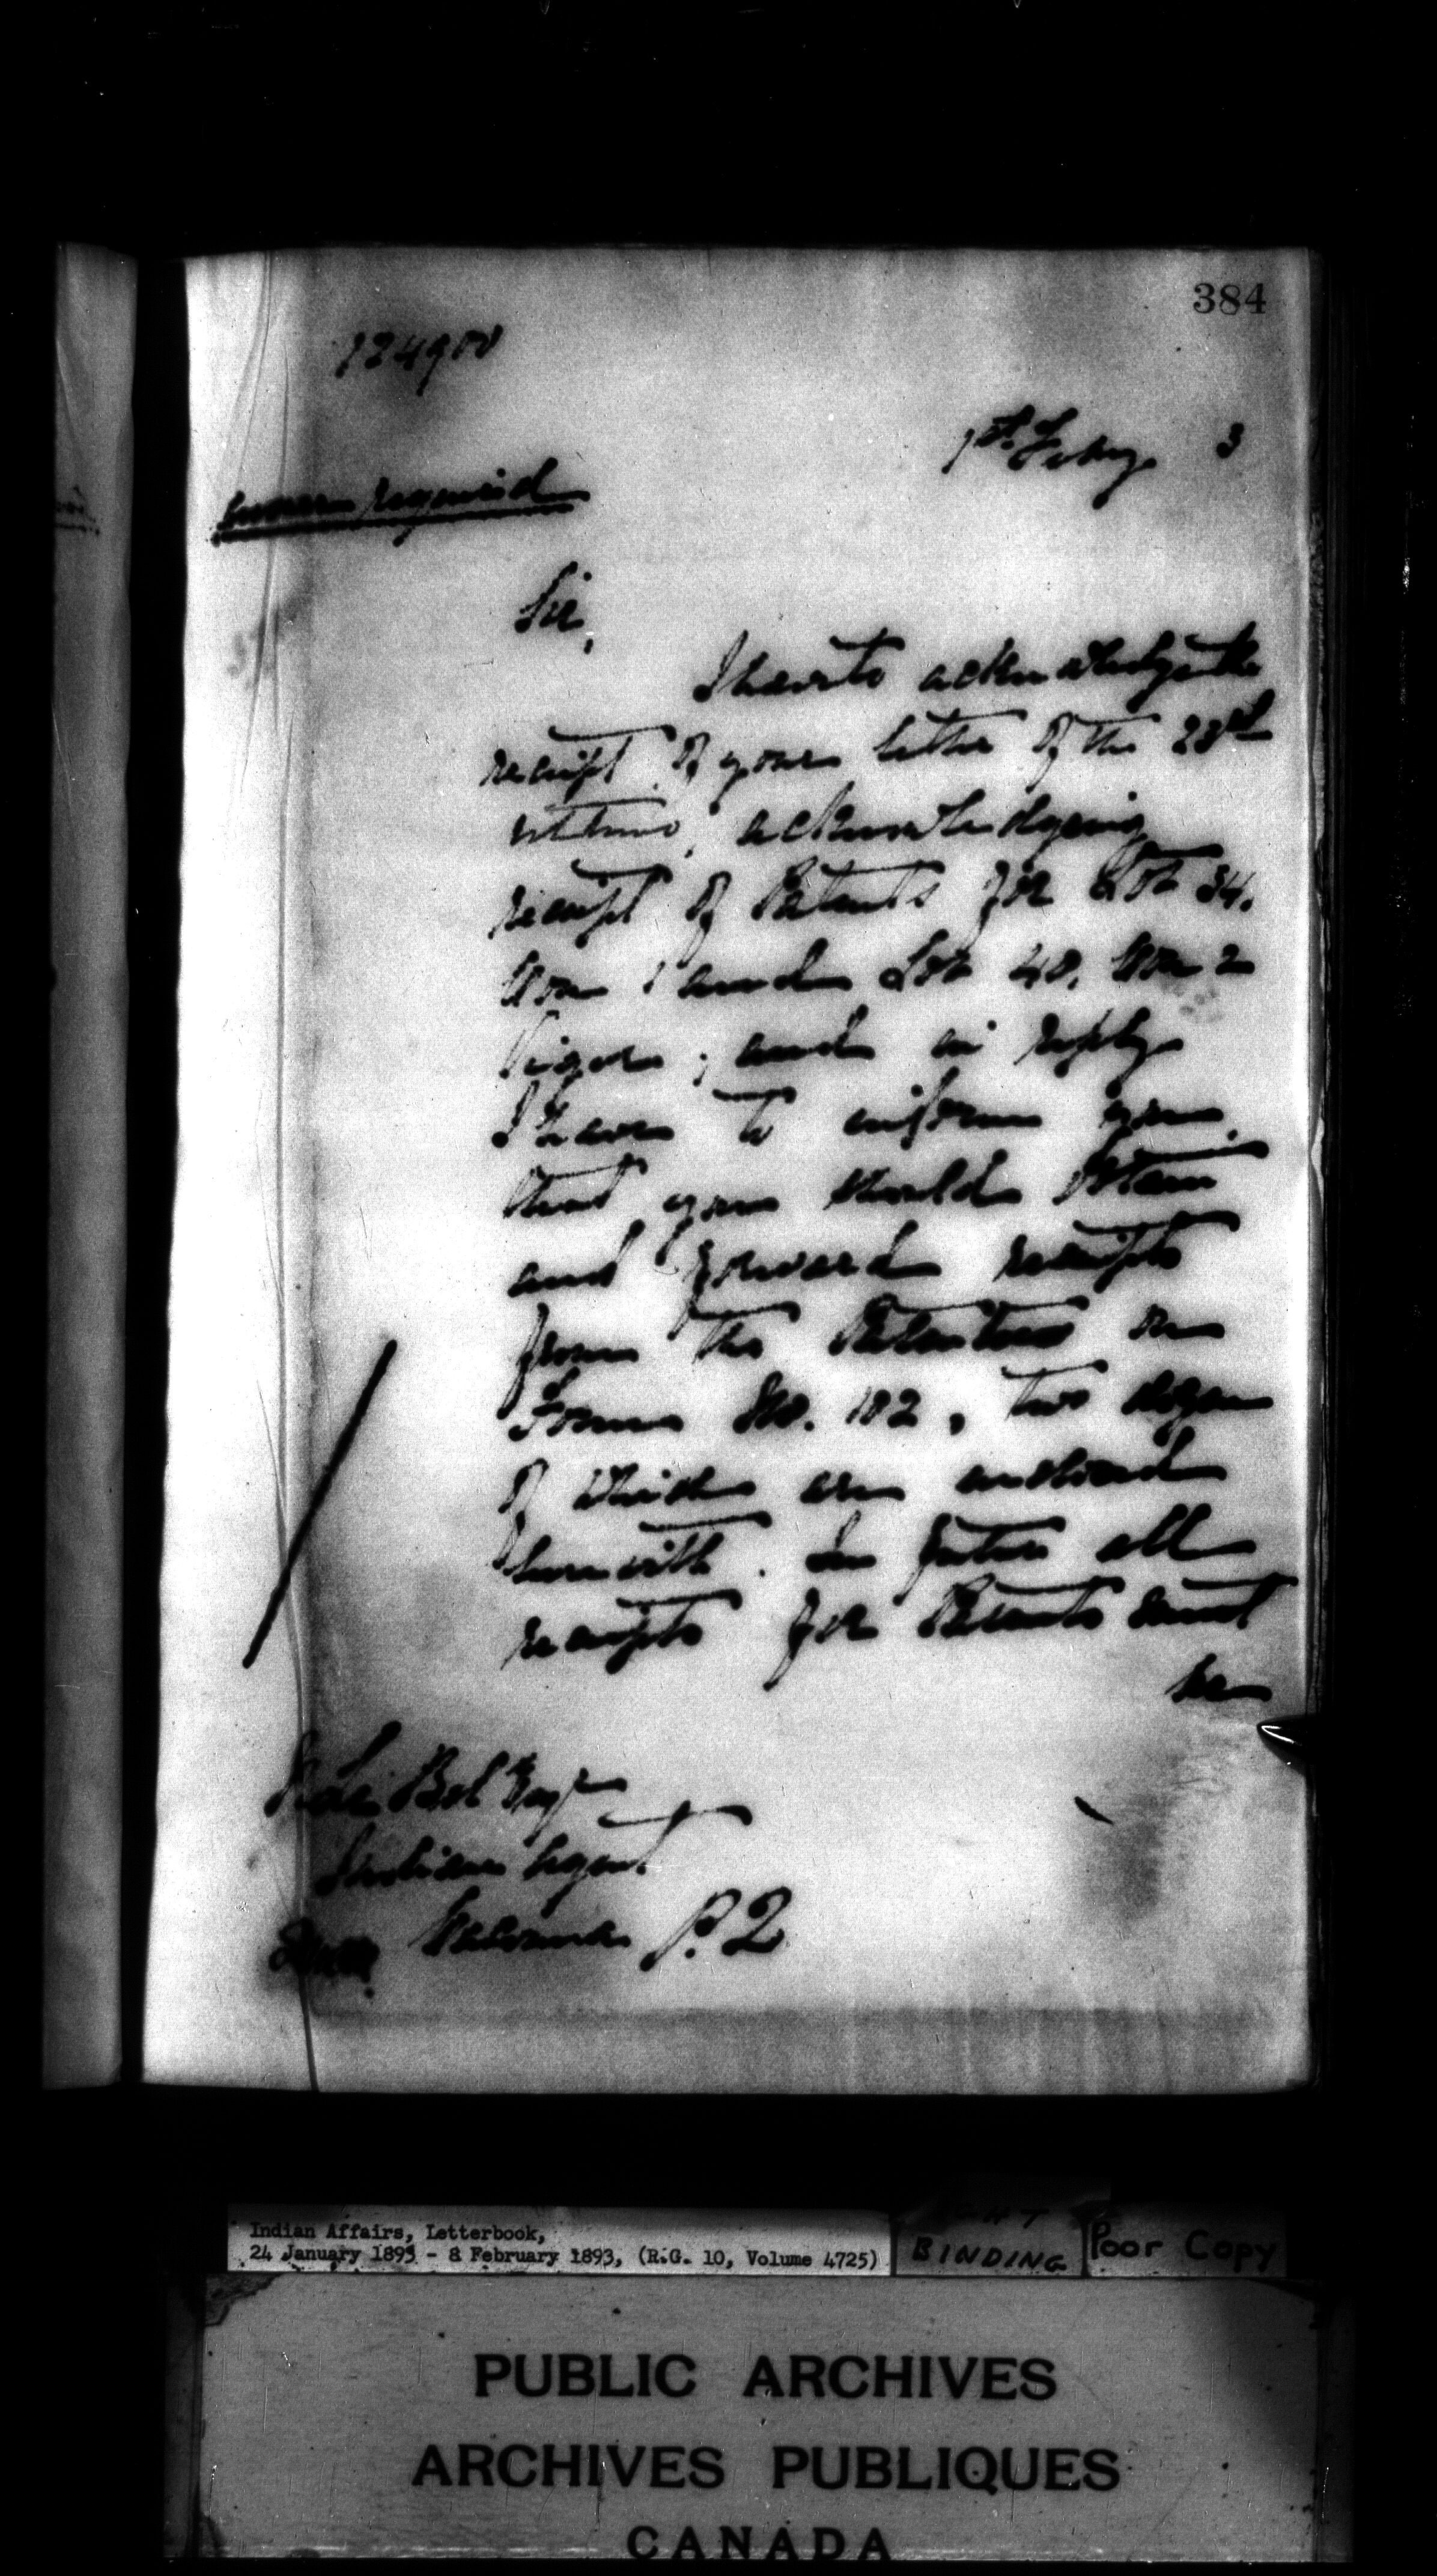 384
124900
1st. Feby 3
Answer required
Sir,
I have to acknowledge the
receipt of your letter of the 28th
ultimo, acknowledging
receipt of Patents for Lot 34.
Con 1 and Lot 40, Con 2
and in reply
I have to inform you
that you should obtain
and forward receipts
from the Patentees on
Form No. 102, two dozen
of which are enclosed
herewith. In future all
receipts for Patents must
be
Bel Esqr
Indian Agent
P.Q
Indian Affairs, Letterbook,
24 January 1893 - 8 February 1893, (R.G. 10, Volume 4725)
BINDING
Poor Copy
PUBLIC ARCHIVES
ARCHIVES PUBLIQUES
CANADA